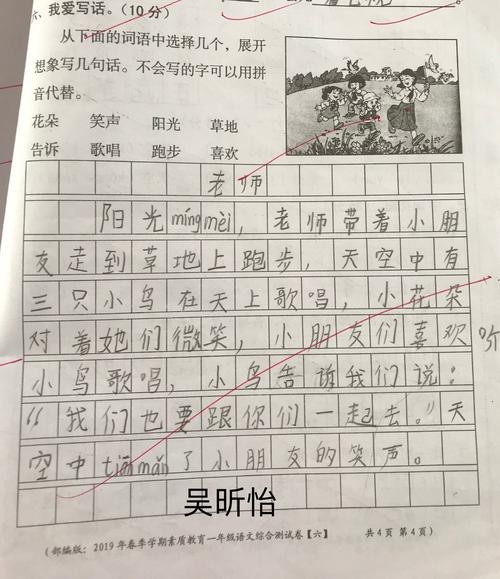 六、我爱写话。(10分)
从下面的词语中选择几个，展开
想象写几句话。不会写的字可以用拼
音代替。
花朵 笑声 阳光 草地
告诉 歌唱 跑步 喜欢
老师
阳光míngmèi，老师带着小朋
友走到草地上跑步，天空中有
三只小鸟在天上歌唱，小花朵
对着她们微笑，小朋友们喜欢听
小鸟歌唱，小鸟告诉我们说：
“我们也要跟你们一起去。”天
空中 了小朋友的笑声。
吴昕怡
(部编版：2019年春季学期素质教育一年级语文综合测试卷【六】 共4页 第4页)